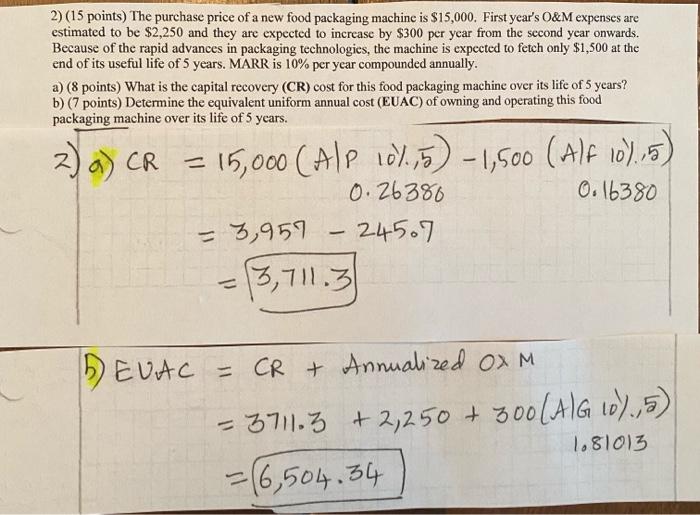 2) (15 points) The purchase price of a new food packaging machine is $15,000. First year's O&M expenses are
estimated to be $2,250 and they are expected to increase by $300 per year from the second year onwards.
Because of the rapid advances in packaging technologies, the machine is expected to fetch only $1,500 at the
end of its useful life of 5 years. MARR is 10% per year compounded annually.
a) (8 points) What is the capital recovery (CR) cost for this food packaging machine over its life of 5 years?
b) (7 points) Determine the equivalent uniform annual cost (EUAC) of owning and operating this food
packaging machine over its life of 5 years.
2) a) CR = 15,000 (A|P 10%,5) - 1,500 (A|F 10%,5)
0.26386 0.16380
= 3,957 - 245.7
= 3,711.3
b) EUAC = CR + Annualized O&M
= 3711.3 + 2,250 + 300(A|G 10%,5)
1.81013
= 6,504.34